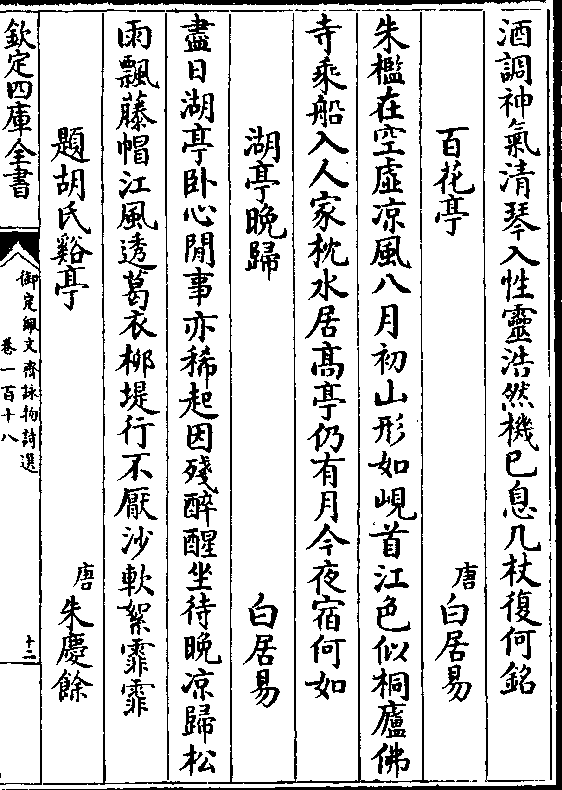 酒調神氣清琴入性靈浩然機已息几杖復何銘
百花亭 唐 白居易
朱檻在空虛凉風八月初山形如峴首江色似桐廬佛
寺乘船入人家枕水居髙亭仍有月今夜宿何如
湖亭晚歸 白居易
盡日湖亭卧心閒事亦稀起因殘醉醒坐待晚凉歸松
雨飄藤帽江風透葛衣栁堤行不厭沙軟絮霏霏
題胡氏谿亭 唐 朱慶餘
欽定四庫全書
御定佩文齋詠物詩選
卷一百十八
十二